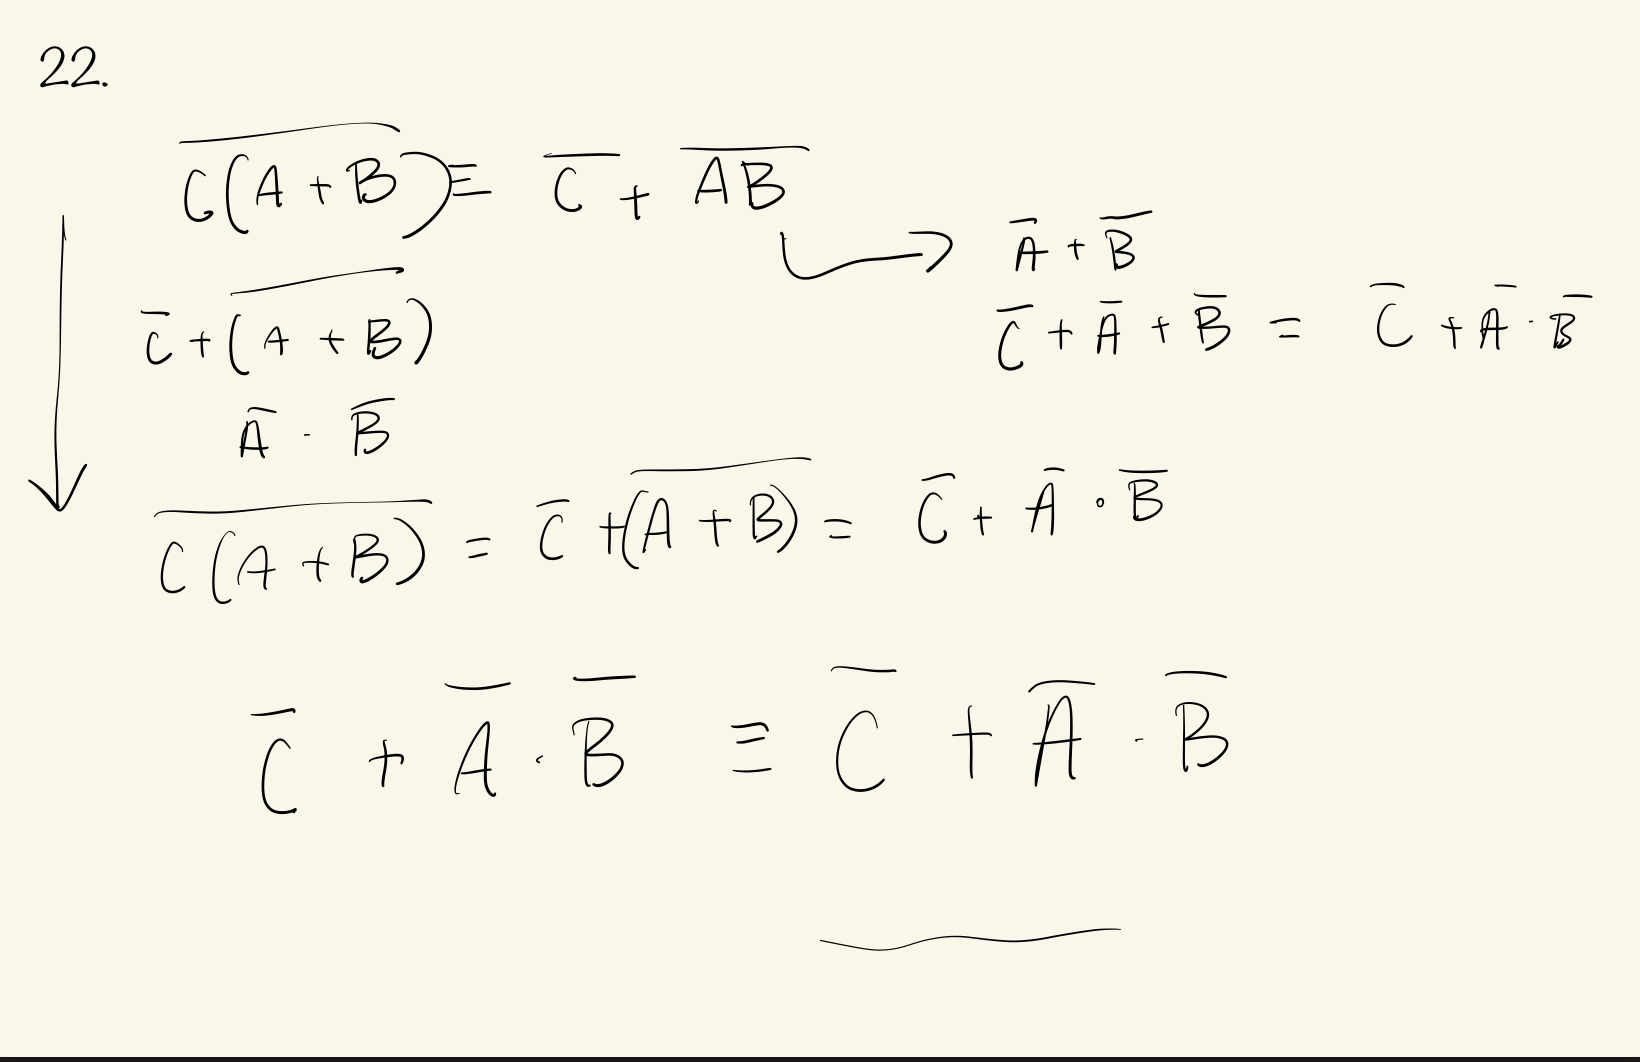 22.
\overline{C(A + B)} ≡ \overline{C} + \overline{AB}
\overline{A} + \overline{B}
\overline{C} + \overline{A} + \overline{B} = \overline{C} + \overline{A} · \overline{B}
\overline{C} + \overline{(A + B)}
\overline{A} · \overline{B}
\overline{C(A + B)} = \overline{C} + \overline{(A + B)} = \overline{C} + \overline{A} · \overline{B}
\overline{C} + \overline{A} · \overline{B} ≡ \overline{C} + \overline{A} · \overline{B}